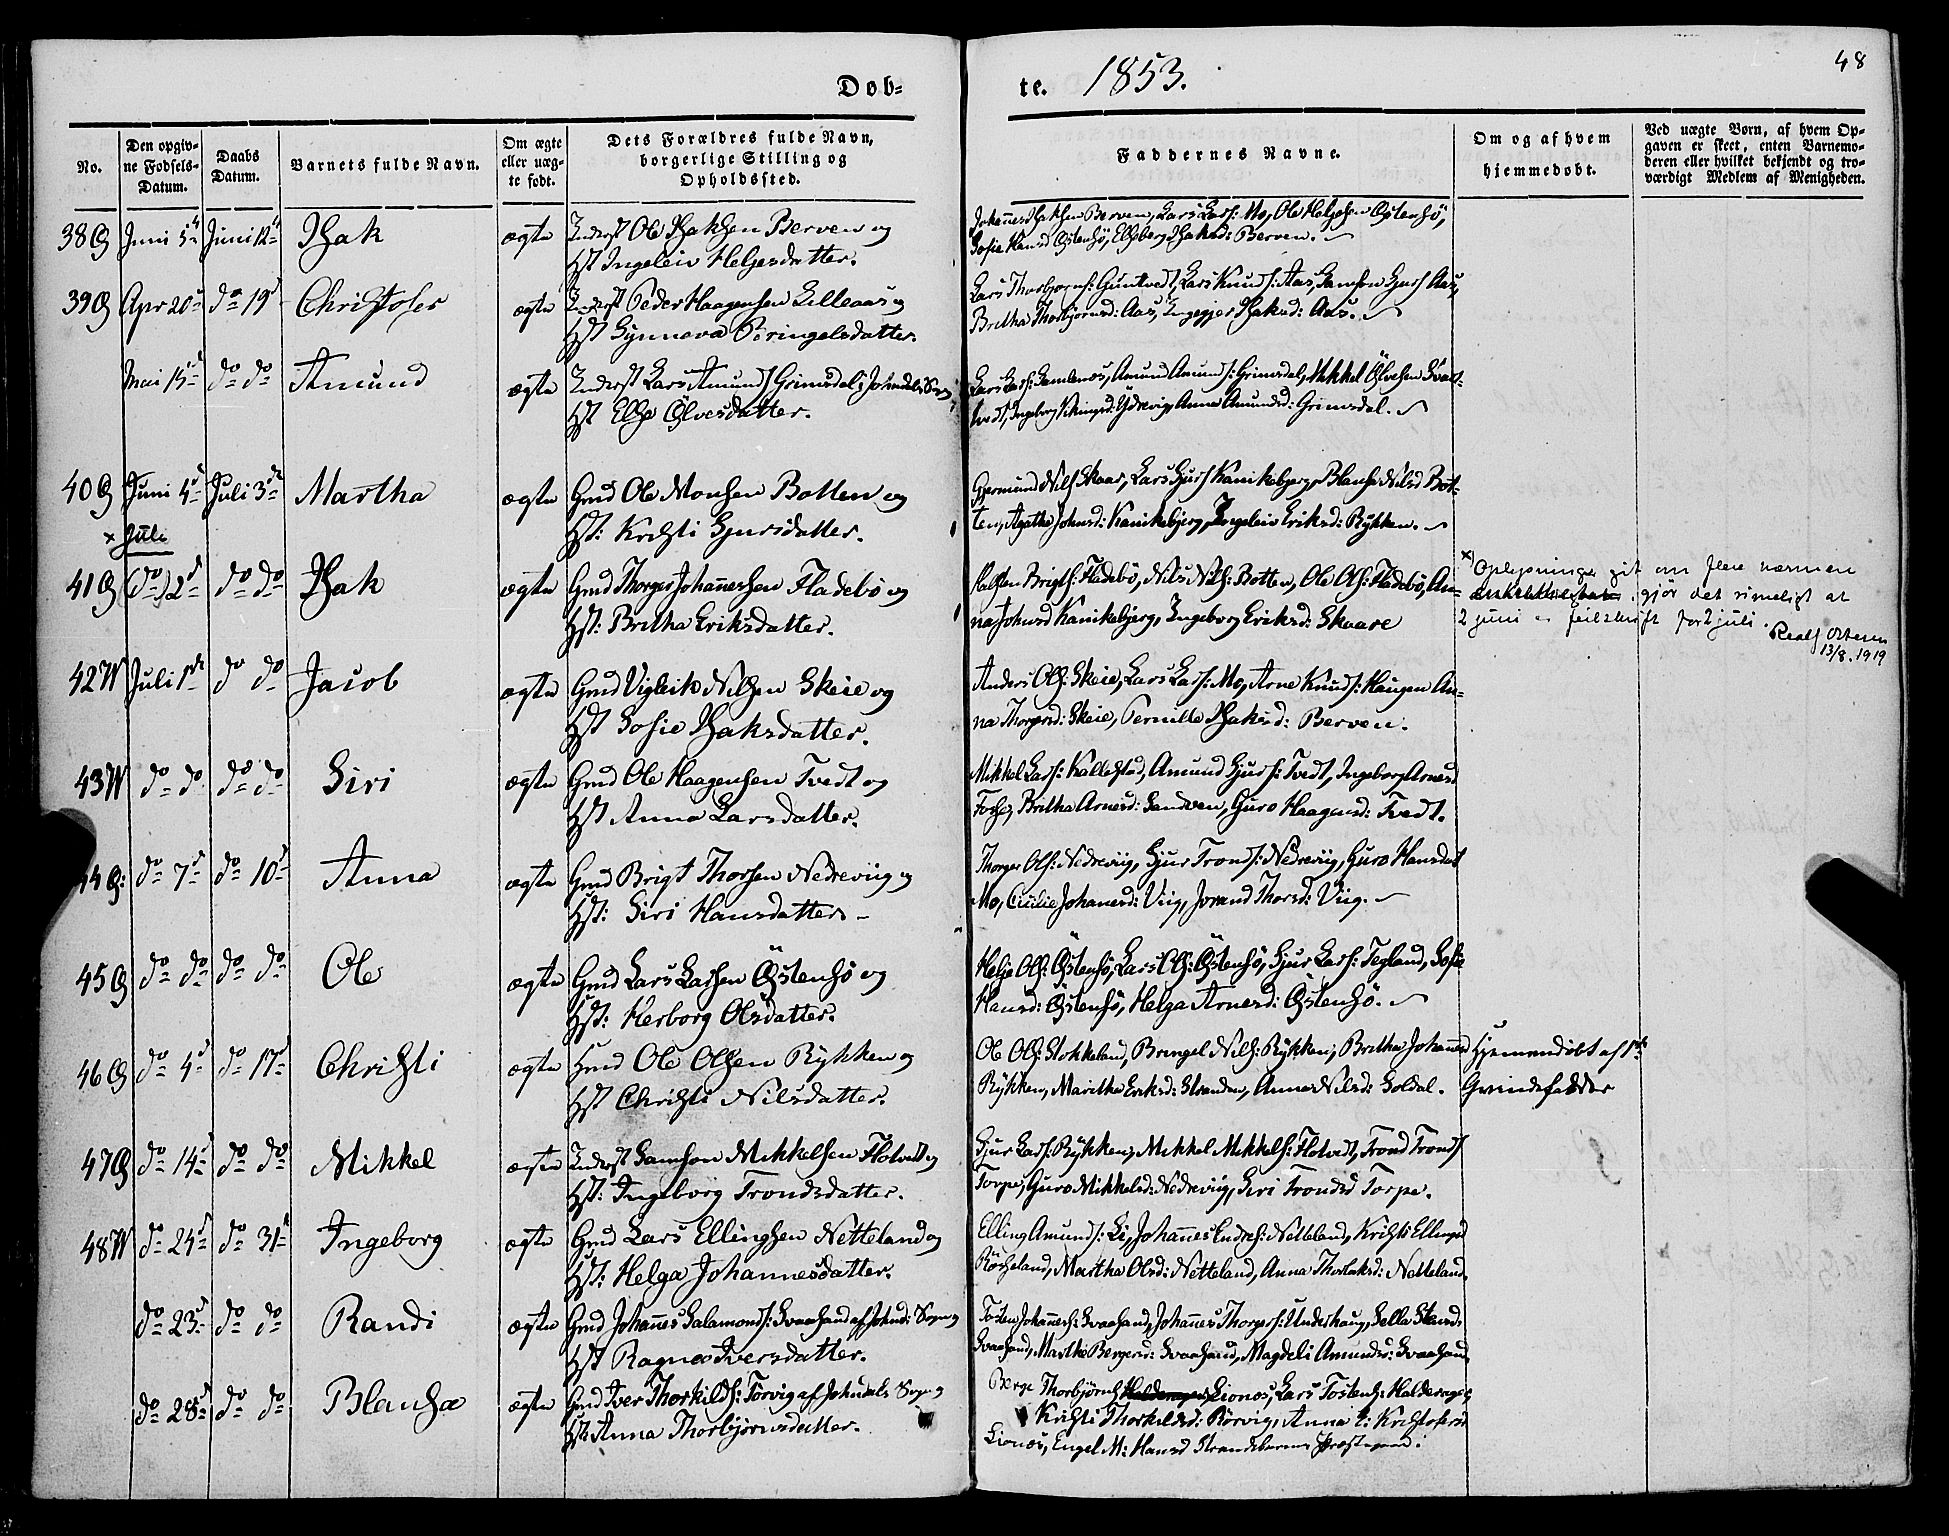 48
Døb-
te. 1853.
No.
Den opgiv-
ne Fødsels-
Datum.
Daabs
Datum.
Barnets fulde Navn.
Om ægte
eller uæg-
te født.
Dets Forældres fulde Navn,
borgerlige Stilling og
Opholdssted.
Faddernes Navne.
Om og af hvem
hjemmedøbt.
Ved uægte Børn, af hvem Op-
gaven er skeet, enten Barnemo-
deren eller hvilket bekjendt og tro-
værdigt Medlem af Menigheden.
38 Juni 5 Juni 12 Isak ægte Inderst Ole Isaksen Berven og
Hst Ingeleiv Helgesdatter.
Johannes Isaksen Berven, Lars Lars: Mo, Ole Helgesen Østensø,
Sofie Hansd Østensø, Elsberg Isaksd: Berven.
39 Apr 20 do 19 Christofer ægte Inderst Peder Haagensen Lilleaas og
Hst Synneva Beringelsdatter.
Lars Thorbjørns: Guntvedt, Lars Knuds: Aas, Samson Sjurs Aas,
Britha Thorbjørnsd: Aas, Ingegjer Isaksd: Aas.
Mai 15 do do Amund ægte Inderst Lars Amunds Grimsdal i Johndals Sogn
Hst Else Ølvesdatter.
Lars Lars: Samlenes, Amund Amunds: Grimsdal, Mikkel Ølvesen Svart-
tvedt, Ingeborg Vikingsd: Ydrevig, Anna Amundsd: Grimsdal.
40 Juni 4 Juli 3 Martha ægte Gmd Ole Monsen Botten og
Hst: Kristi Sjursdatter.
Germund Nils Skaar, Lars Sjurs Kanikebjerg, Blansa Nilsd Bot-
ten, Agatha Johnsd: Kanikebjerg, Ingeleiv Eriksd: Rykken.
x Juli
41 (do) 2 do do Isak ægte Gmd Thorger Johannessen Fladebø og
Hst: Britha Eriksdatter.
Halsten Brigts: Fladebø, Nils Nils: Botten, Ole Ols: Fladebø, An-
na Johnsd Kanikebjerg, Ingeborg Eriksd: Skaare
x) Oplysninger git om flere nærmere
gjør det rimeligt at
2 juni er feilskrift for 2 juli.
13/8. 1919
42 Juli 1 do do Jacob ægte Gmd Vigleik Nilsen Skeie og
Hst Sofie Isaksdatter.
Anders Ols: Skeie, Lars Lars: Mo, Arne Knuds: Haugen An-
na Thorgersd: Skeie, Pernille Isaksd: Berven.
43 do do do do Siri ægte Gmd Ole Haagensen Tvedt og
Hst Anna Larsdatter.
Mikkel Lars: Kallestad, Amund Sjurs: Tvedt, Ingeborg Arnesd
Fosse, Britha Arnesd: Sandven, Guro Haagensd: Tvedt.
44 do 7 do 10 Anna ægte Gmd Brigt Thorsen Nedreviig og
Hst: Siri Hansdatter
Thorger Ols: Nedreviig, Sjur Tronds: Nedreviig, Guro Hansdat
Mo, Cicilie Johanesd: Viig, Jorand Thorsd: Viig.
45 do do do do Ole ægte Gmd Lars Larsen Østensø og
Hst: Herborg Olsdatter.
Helje Ols: Østensø, Lars Ols: Østensø, Sjur Lars: Tegland, Sofie
Hansd: Østensø, Helga Arnesd: Østensø.
46 do 4 do 17 Christi ægte Hmd Ole Olsen Rykken og
Hst Christi Nilsdatter.
Ole Ols: Stokkeland, Brengel Nils: Rykken, Britha Johannesd
Rykken, Maritha Eriksd: Stranden, Anna Nilsd: Soldal.
Hjemmedøbt af 1ste
Qvindefadder
47 do 14 do do Mikkel ægte Inderst Samson Mikkelsen Flotvedt og
Hst: Ingeborg Trondsdatter.
Sjur Lars Rykken, Mikkel Mikkels: Flotvedt, Trond Tronds
Torpe, Guro Mikkelsd: Nedreviig, Siri Trondsd Torpe.
48 do 24 do 31 Ingeborg ægte Gmd Lars Ellingsen Netteland og
Hst: Helga Johannesdatter.
Elling Amunds: Li, Johannes Endres: Netteland, Kristi Ellingsd
Røsseland, Martha Olsd: Netteland, Anna Thorlaksd: Netteland.
do 23 do do Randi ægte Gmd Johannes Salamons: Svaasand af Johnd: Sogn og
Hst Ragna Iversdatter.
Tosten Johanness: Svaasand, Johannes Thorgers: Underhaug, Sella Stensd:
Svaasand, Martha Bergesd: Svaasand, Magdeli Amundsd: Svaasand.
do 28 do do Blansa ægte Gmd Iver Thorkilds: Torvig af Johndals Sogn og
Hst Anna Thorbjørnsdatter.
Berge Thorbjørns Lionæs, Lars Tostens: Halderager,
Kristi Thorkildsd: Rørvig, Anna E: Kristofersd
Lionæs, Engel M: Hansd Strandebarms Præstegaard.